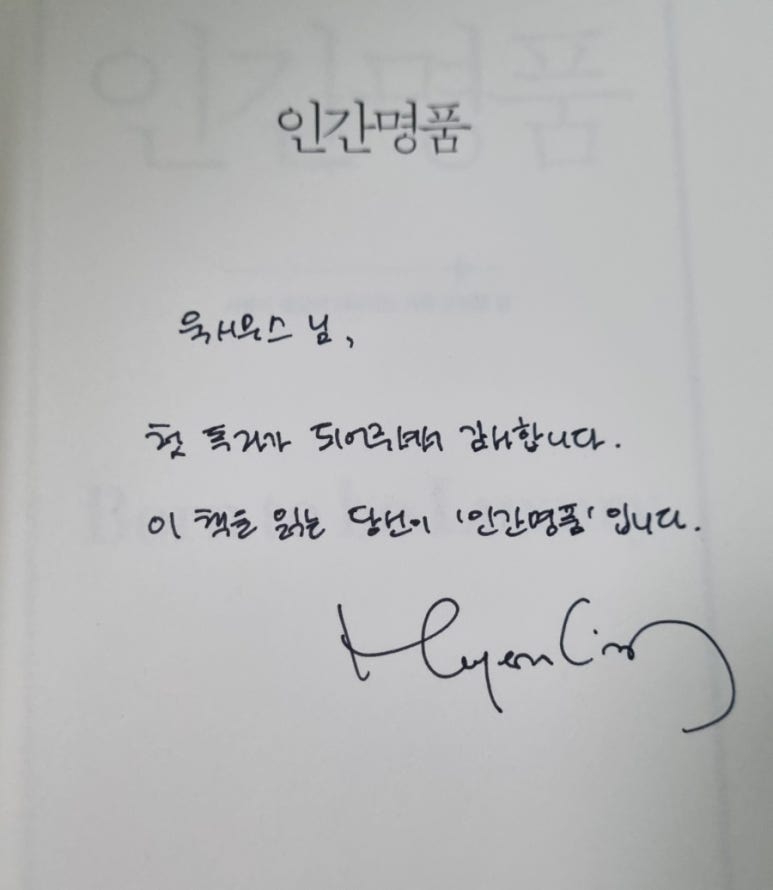 인간명품
님,
첫 독자가 되어주셔서 감사합니다.
이 책을 읽는 당신이 '인간명품' 입니다.